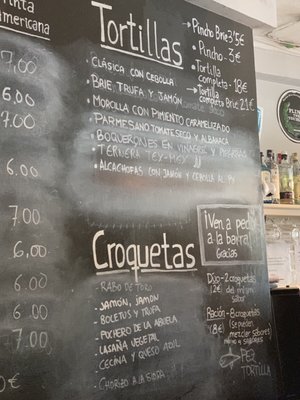 inta
americana
7.00
6.00
7.00
6.00
7.00
6.00
6.00
6.00
7.00
Tortillas
→Pincho Brie 3'5€
·Pincho · 3€
·Tortilla
completa · 18€
→Tortilla
completa Brie 21€
·CLÁSICA CON CEBOLLA
·BRIE, TRUFA Y JAMÓN
·MORCILLA CON PIMIENTO CARAMELIZADO
·PARMESANO, TOMATE SECO Y ALBAHACA
·BOQUERONES EN VINAGRE Y
·TERNERA TEX-MEX
·ALCACHOFAS CON JAMÓN Y CEBOLLA AL PX
¡Ven a pedir
a la barra!
Gracias
Croquetas
·RABO DE TORO
·JAMÓN, JAMON
·BOLETUS Y TRUFA
·PUCHERO DE LA ABUELA
·LASAÑA VEGETAL
·CECINA Y QUESO AZUL
·CHORIZO A LA SIDRA
Dúo-2 croquetas
(2€) del mismo
sabor
Ración-8 croquetas
(8€) (se pueden
mezclar sabores)
TORTILLA